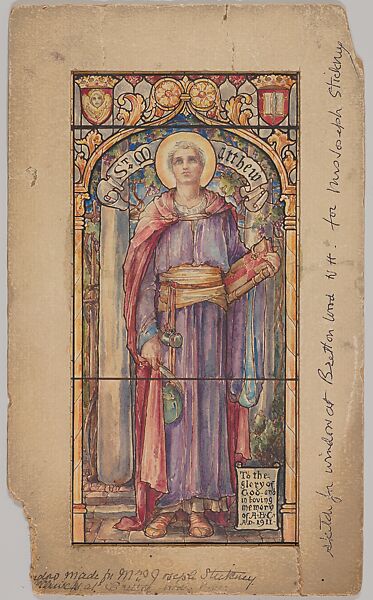 St. Matthew
To the
glory of
God and
in loving
memory
of A·B·C·
A.D. 1911
Sketch for window at Bretton Wood N H. for Mrs Joseph Stickney
made for Mrs Joseph Stickney
at Bretton Woods